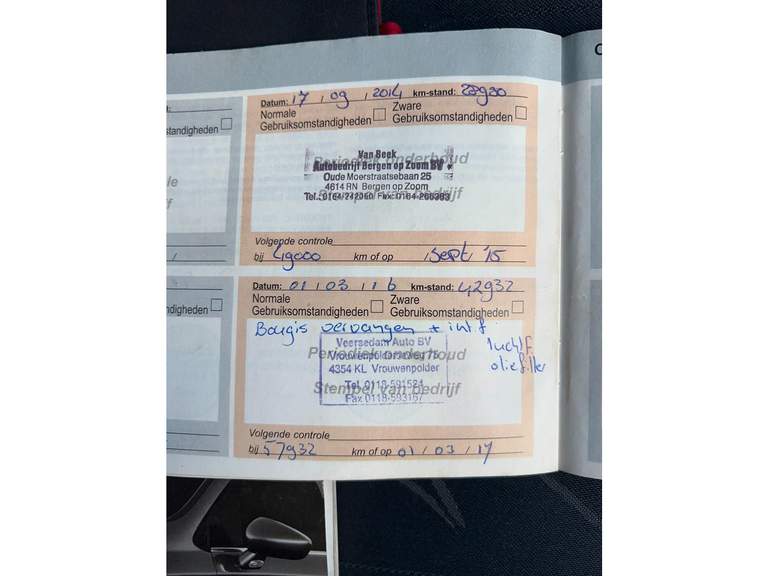 Datum: 17 , 09 , 2014 km-stand:
Normale Gebruiksomstandigheden
Zware Gebruiksomstandigheden
Periodiek onderhoud
Stempel van bedrijf
Van Beek
Autobedrijf Bergen op Zoom BV
Oude Moerstraatsebaan 25
4614 RN Bergen op Zoom
Tel.: 0164-242050 Fax: 0164-266363
Volgende controle
bij 49000 km of op sept '15
standigheden
Datum: 01 / 03 / 16 km-stand: 42932
Normale Gebruiksomstandigheden
Zware Gebruiksomstandigheden
Bougis vervangen + int f
luchtF
oliefilter
Periodiek onderhoud
Stempel van bedrijf
Veersedam Auto BV
Vrouwenpolderseweg 75
4354 KL Vrouwenpolder
Tel. 0118-591524
Fax 0118-593157
Volgende controle
bij 57932 km of op 01 / 03 / 17
igheden